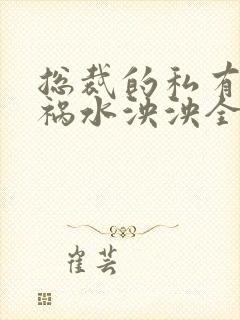 总裁的私有
祸水泱泱全
崔芸